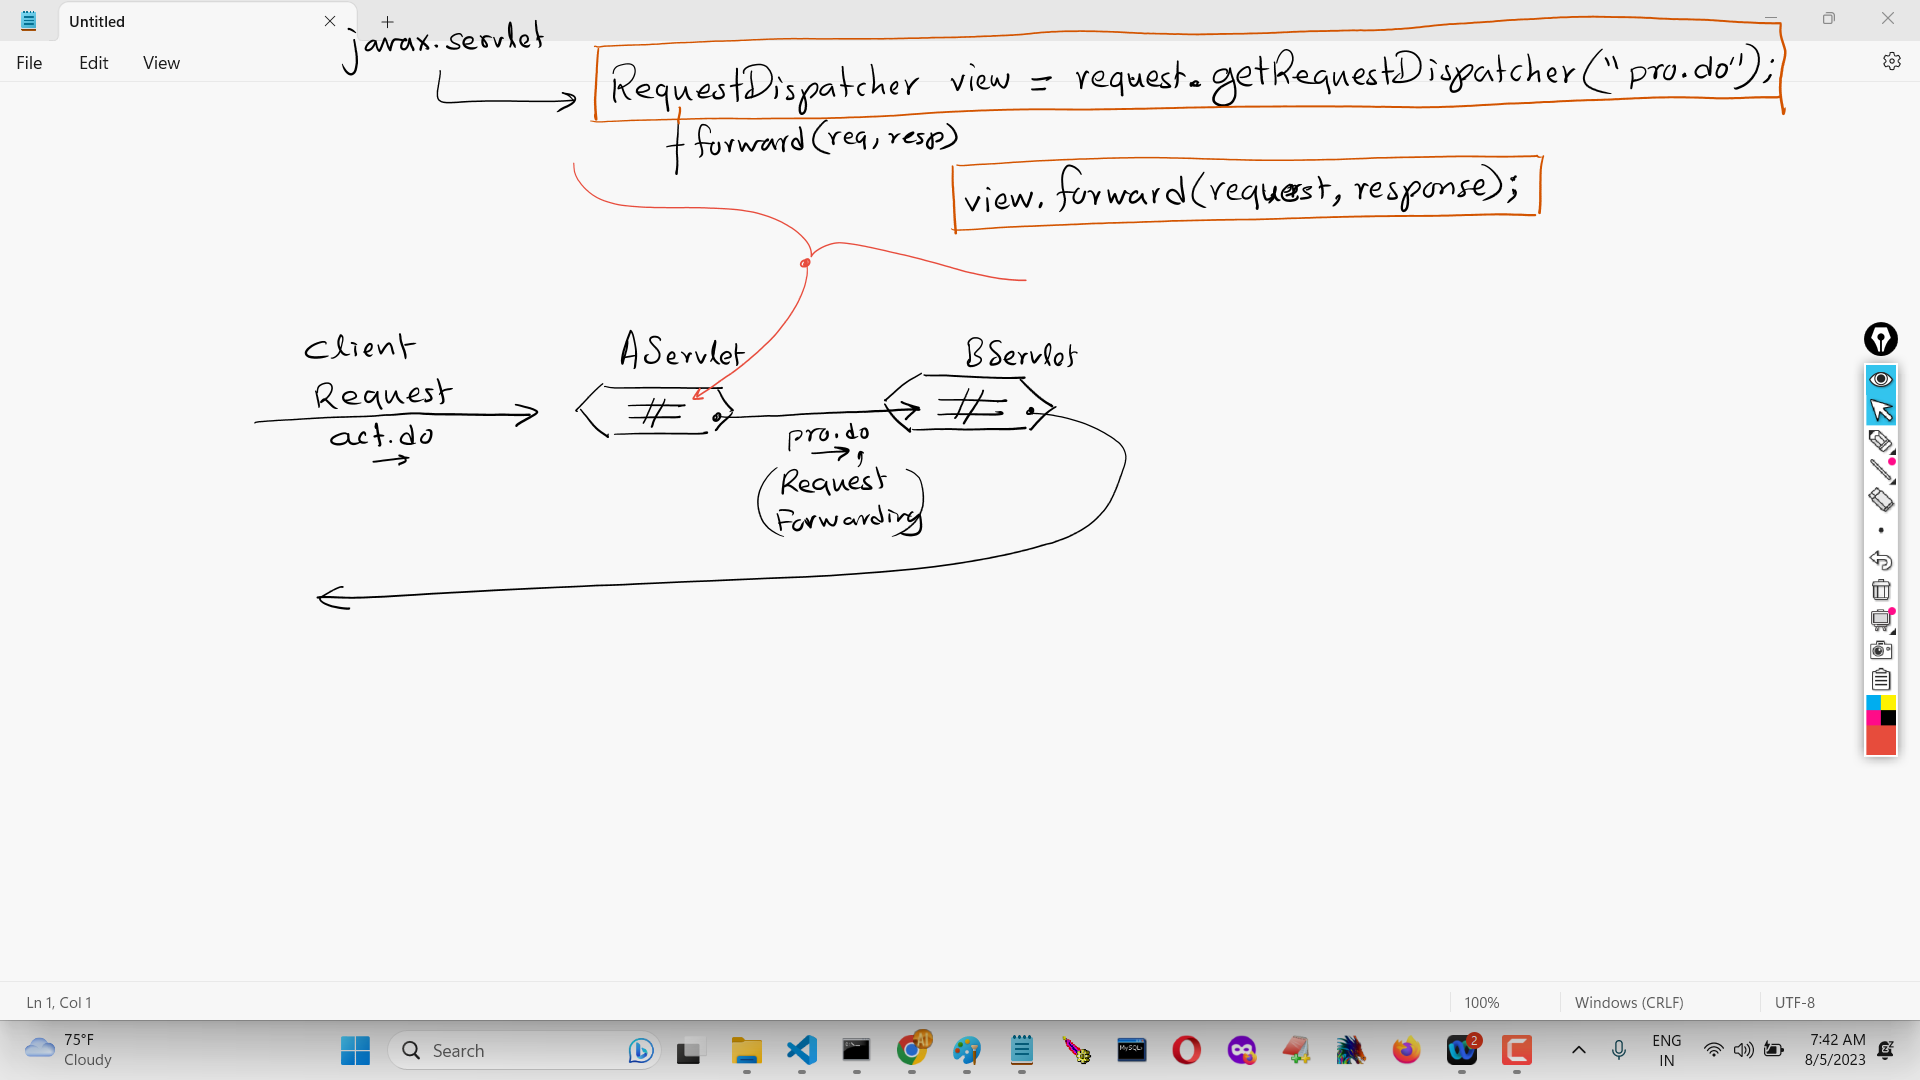 Untitled
File
Edit
View
javax.servlet
RequestDispatcher view = request.getRequestDispatcher("pro.do");
forward(req, resp)
view.forward(request, response);
Client
Request
act.do
AServlet
BServlet
pro.do
(Request
Forwarding)
Ln 1, Col 1
100%
Windows (CRLF)
UTF-8
75°F
Cloudy
Search
MySQL
2
ENG
IN
7:42 AM
8/5/2023